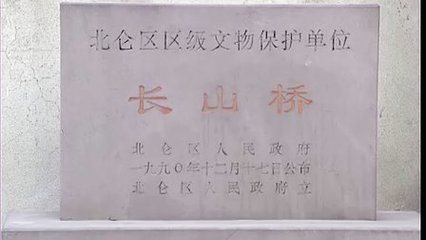 北仑区区级文物保护单位
长山桥
北仑区人民政府
一九九〇年十二月十七日公布
北仑区人民政府立